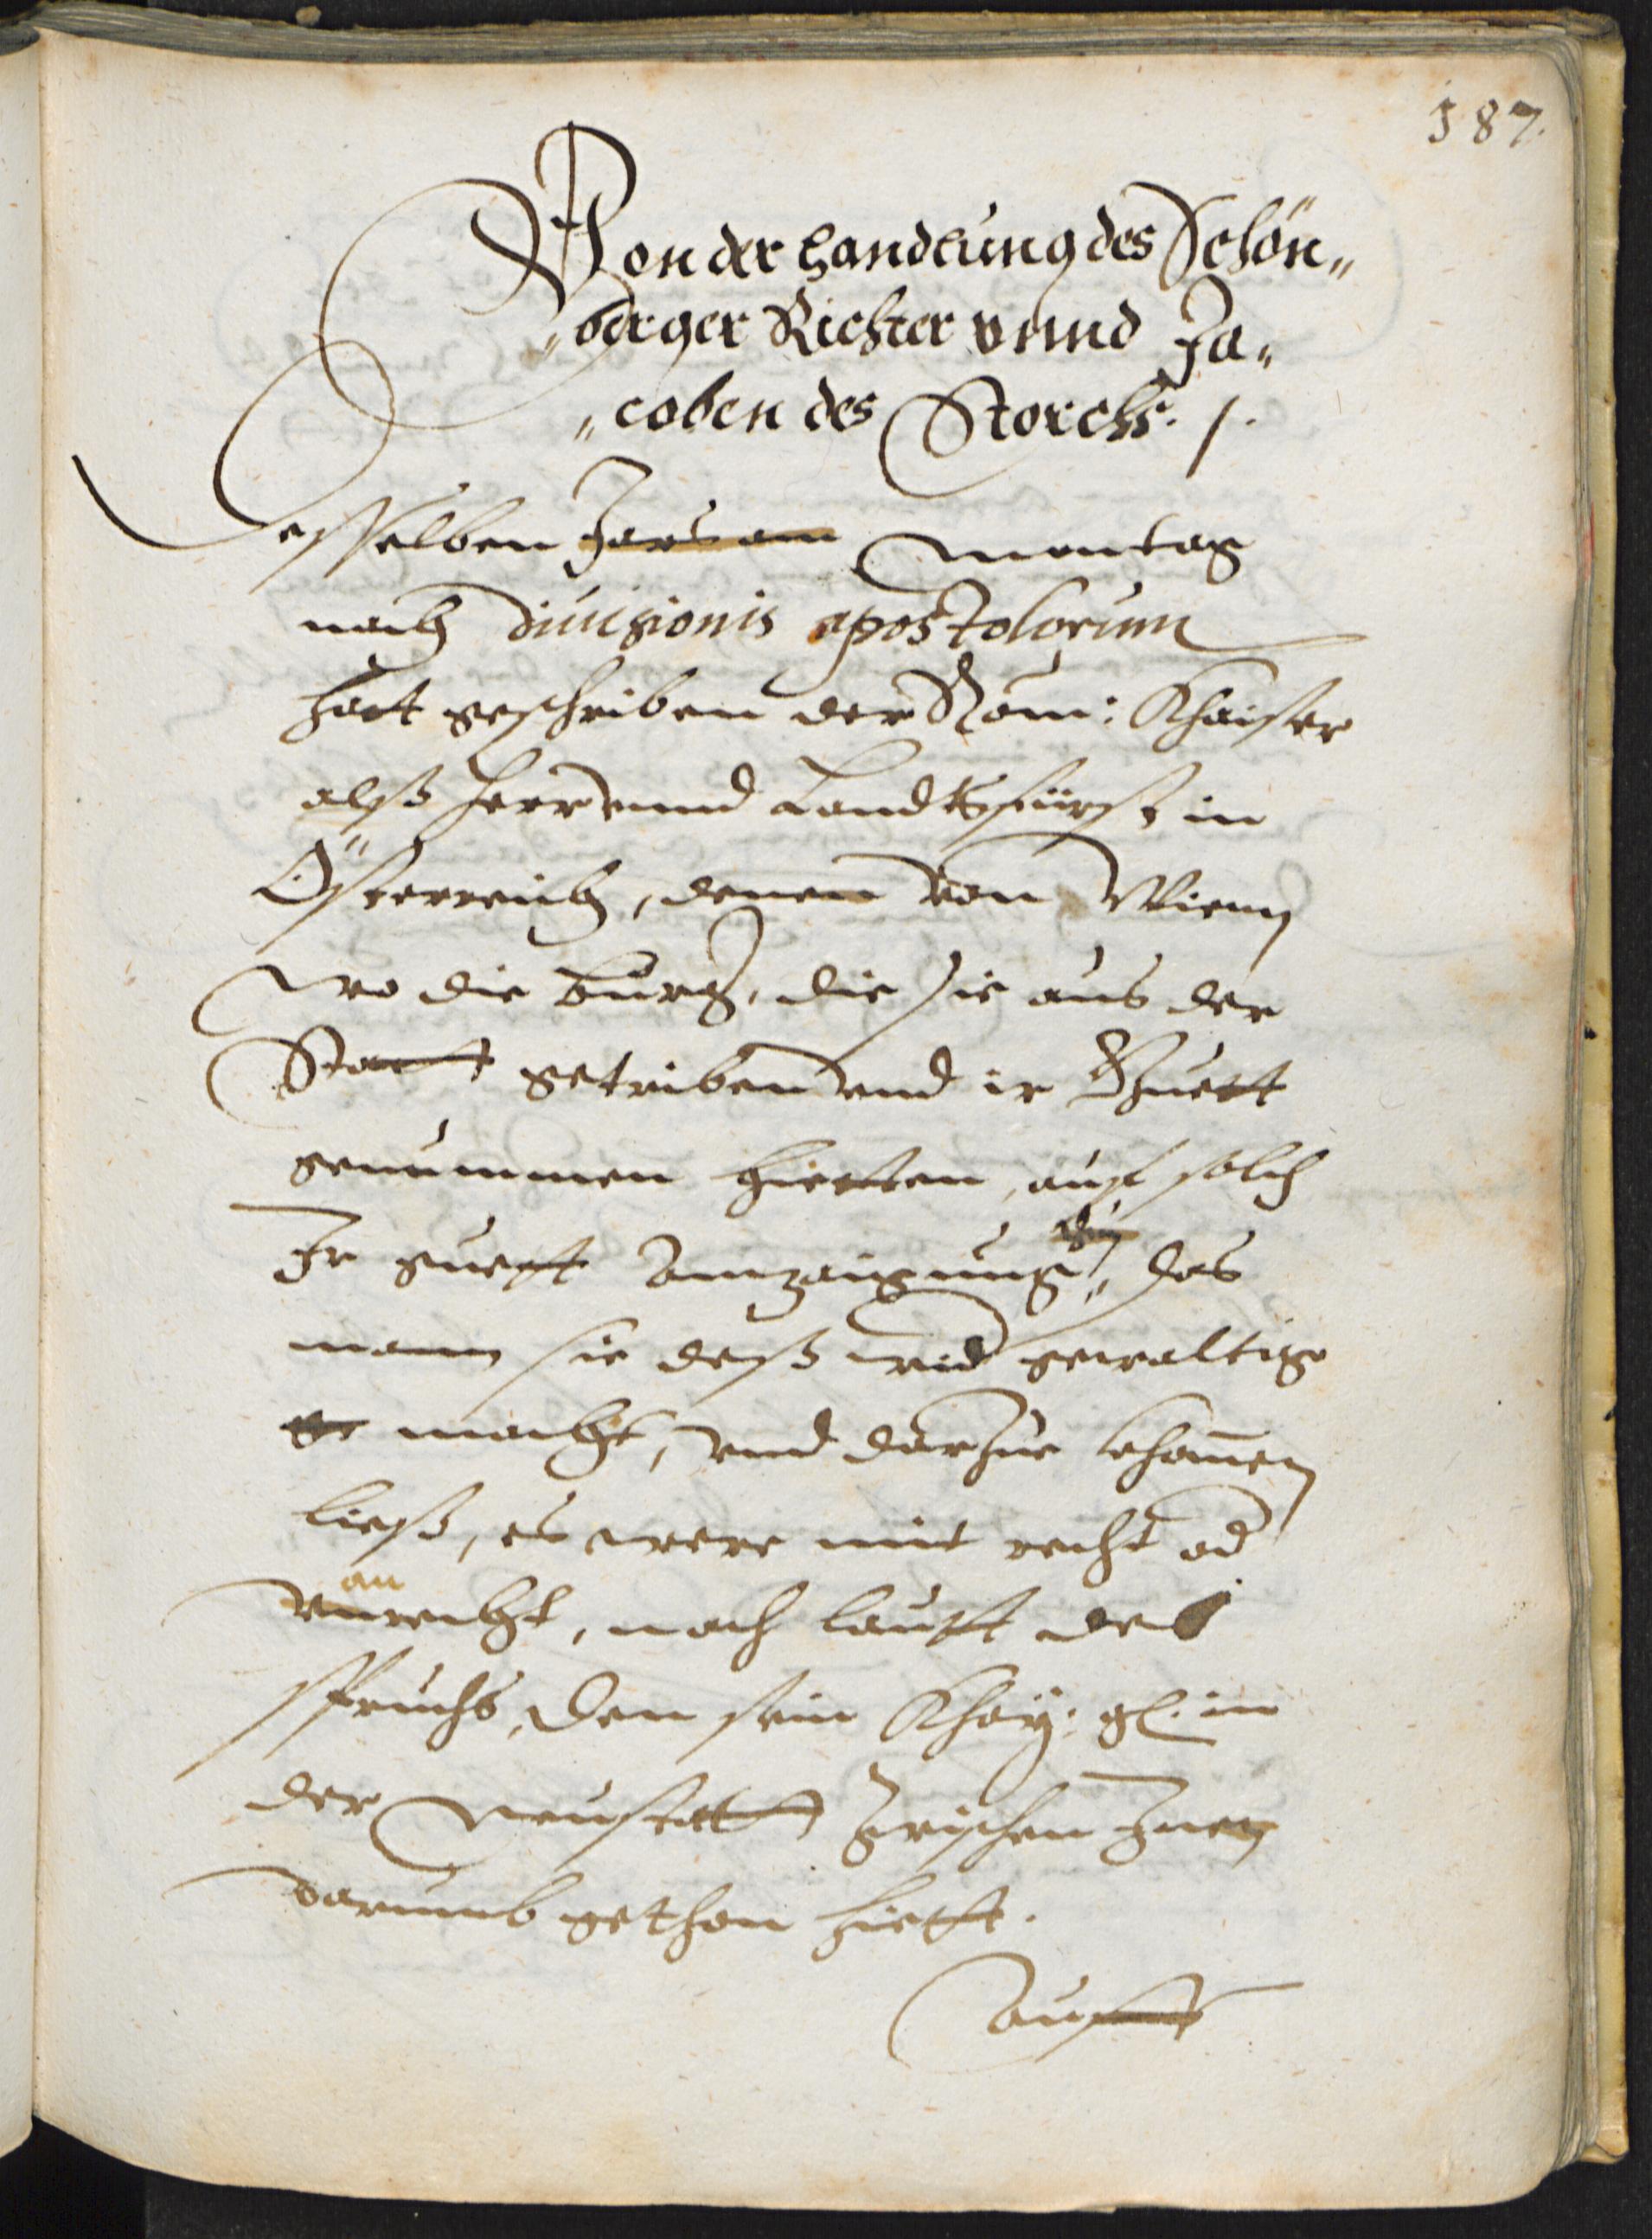 187.
Von der handlung des Schön„
„berger Richter vnnd Ja„
„coben des Storchs: /.
Desselben Jars am montag
nach diuisionis apostolorum
hatt geschriben der Röm: Khaiser
alß herr vnnd Landtsfürst in
Österreich, denen von Wienn
wo die burg, die sie aus der
Statt getriben vnd ir Guett
genummen hietten, auf solch
Ir guett anzaigung, das
mann sie deß wid gewaltig
macht, vnd darzue khomen
ließ, es were mit recht od
an
vnrecht, nach lautt des
spruchs, den sein Khay: gl. in
der Neustatt zwischen Inen
darumb gethon hiett.
auff